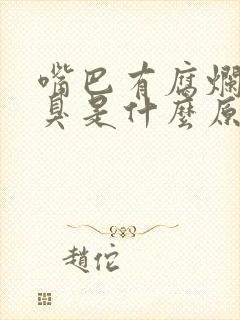 嘴巴有腐爛
臭是什麼原
趙佗